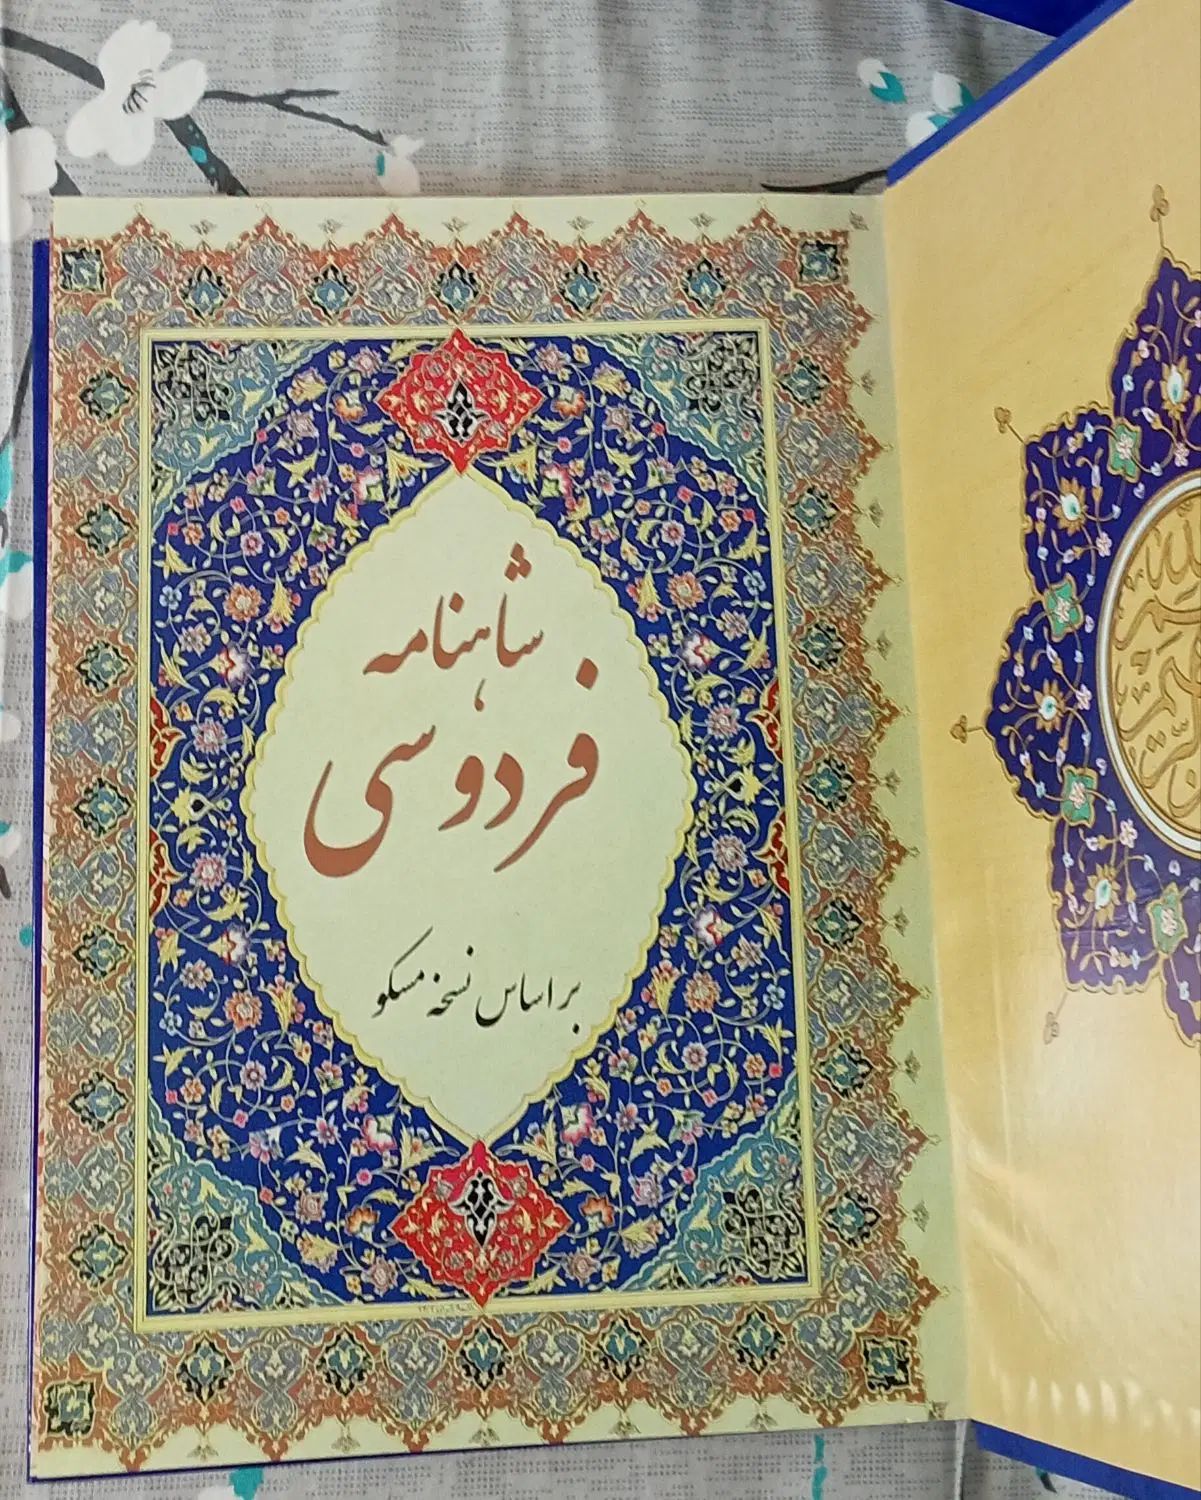 شاهنامه
فردوسی
بر اساس نسخهٔ مسکو